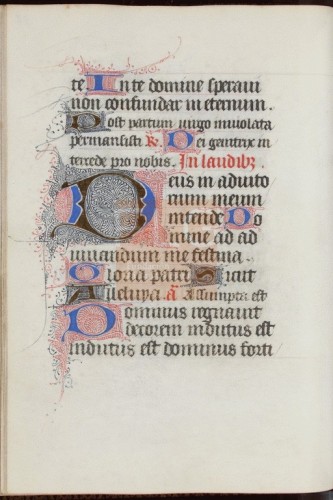 te In te domine speraui
non confundar in eternum .
Post partum uirgo inuiolata
permansisti ℟. Dei genitrix in
tercede pro nobis . In laudibꝫ .
Deus in adiuto
rium meum
intende Do
mine ad ad
iuuandum me festina .
Gloria patri Sicut
Alleluya . a Assumpta est
Dominus regnauit
decorem indutus est
indutus est dominus forti